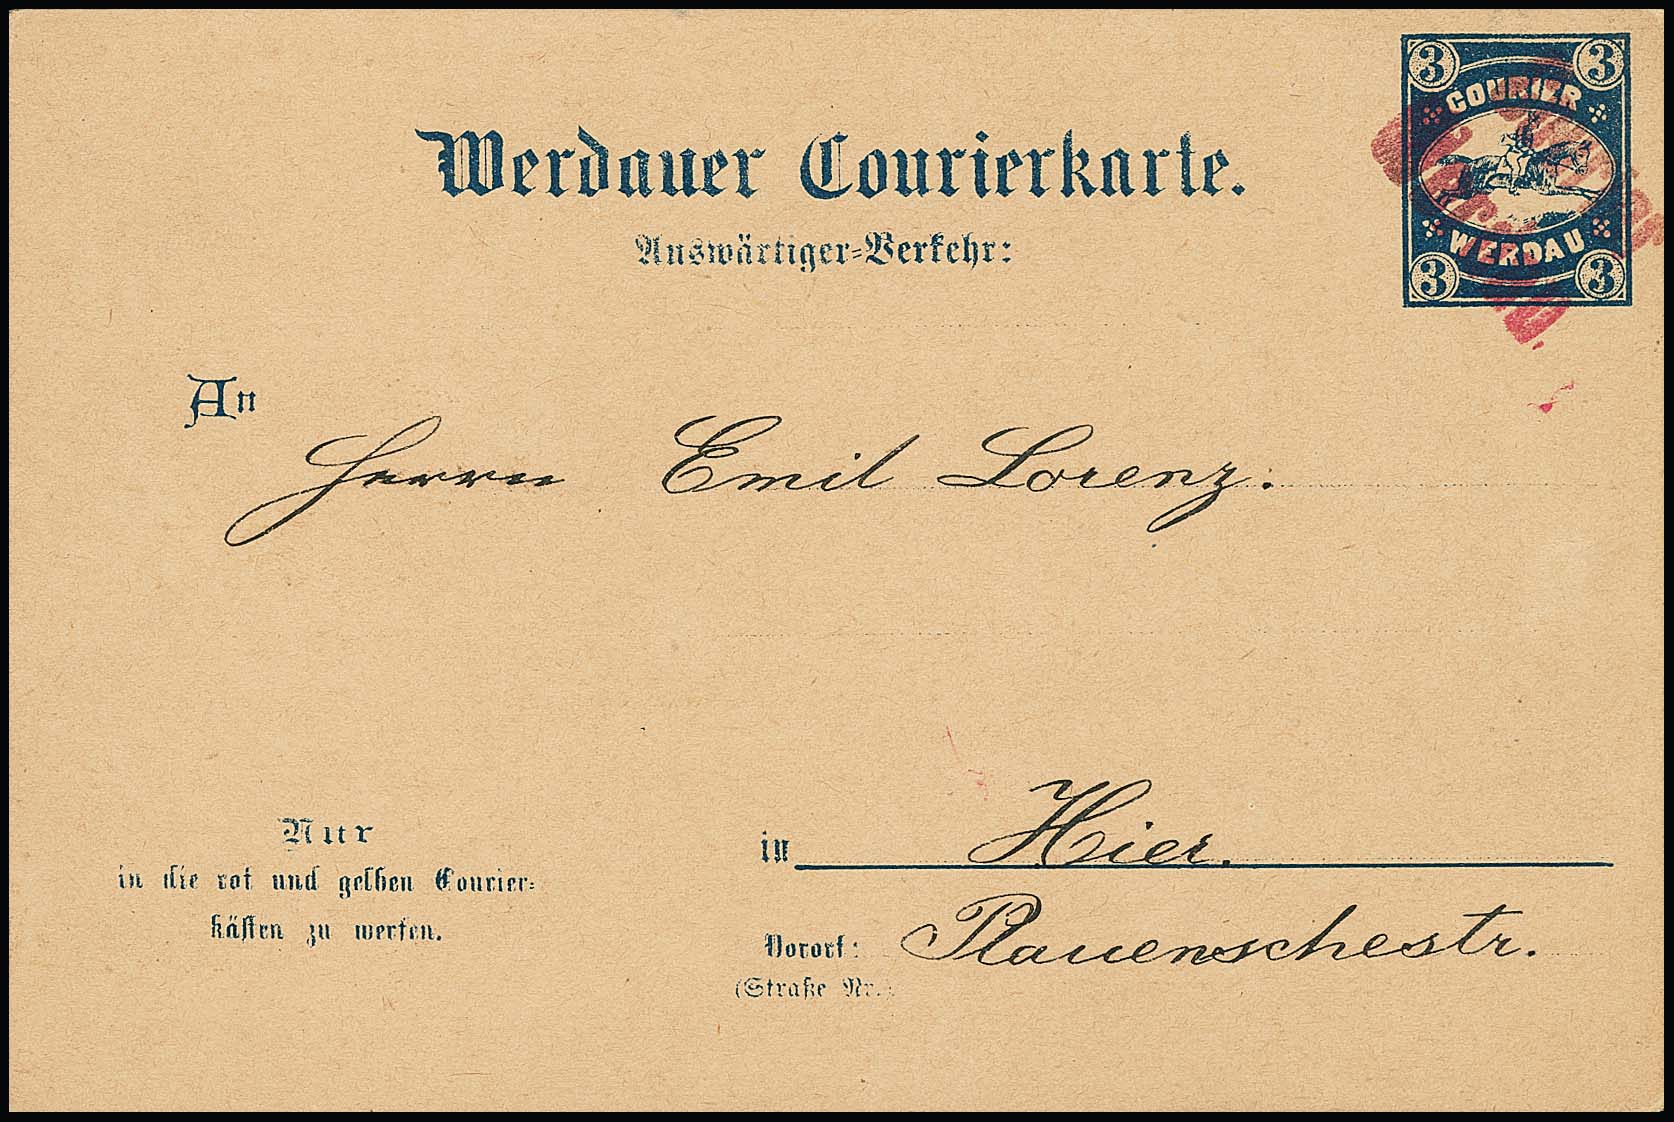 3 3
COURIER
Werdauer Courierkarte.
Auswärtiger-Verkehr:
WERDAU
3 3
An
Herrn Emil Lorenz.
in Hier.
Nur
in die rot und gelben Courier-
kästen zu werfen.
Vorort: Plauenschestr.
(Straße Nr.)